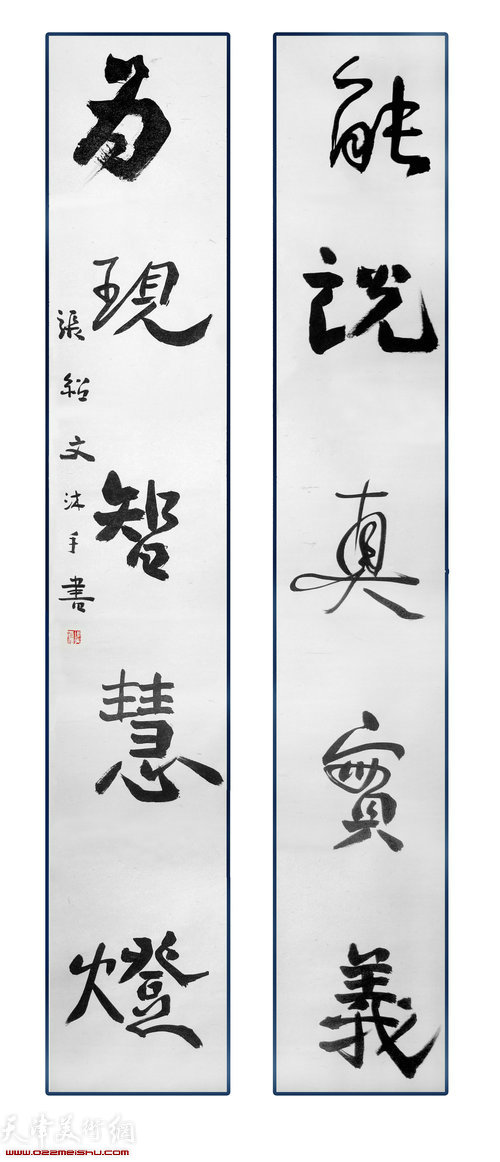 能説真實義
為現智慧燈
張紹文沐手書
天津美術網
www.022meishu.com